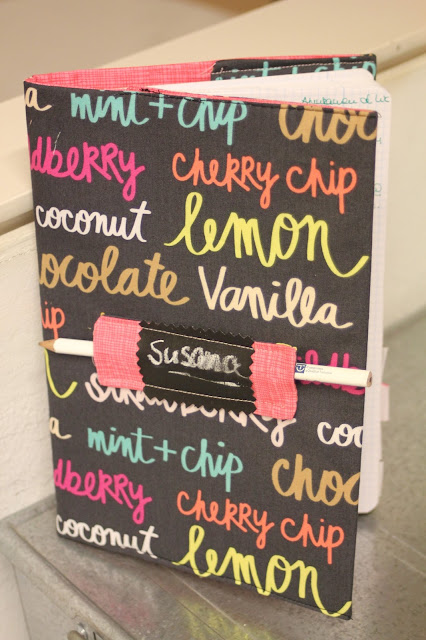 a mint + chip choc
ldberry cherry chip
coconut lemon
ocolate Vanilla
hip
Susana
strawberry coc
a mint + chip choc
ldberry cherry chip
coconut lemon